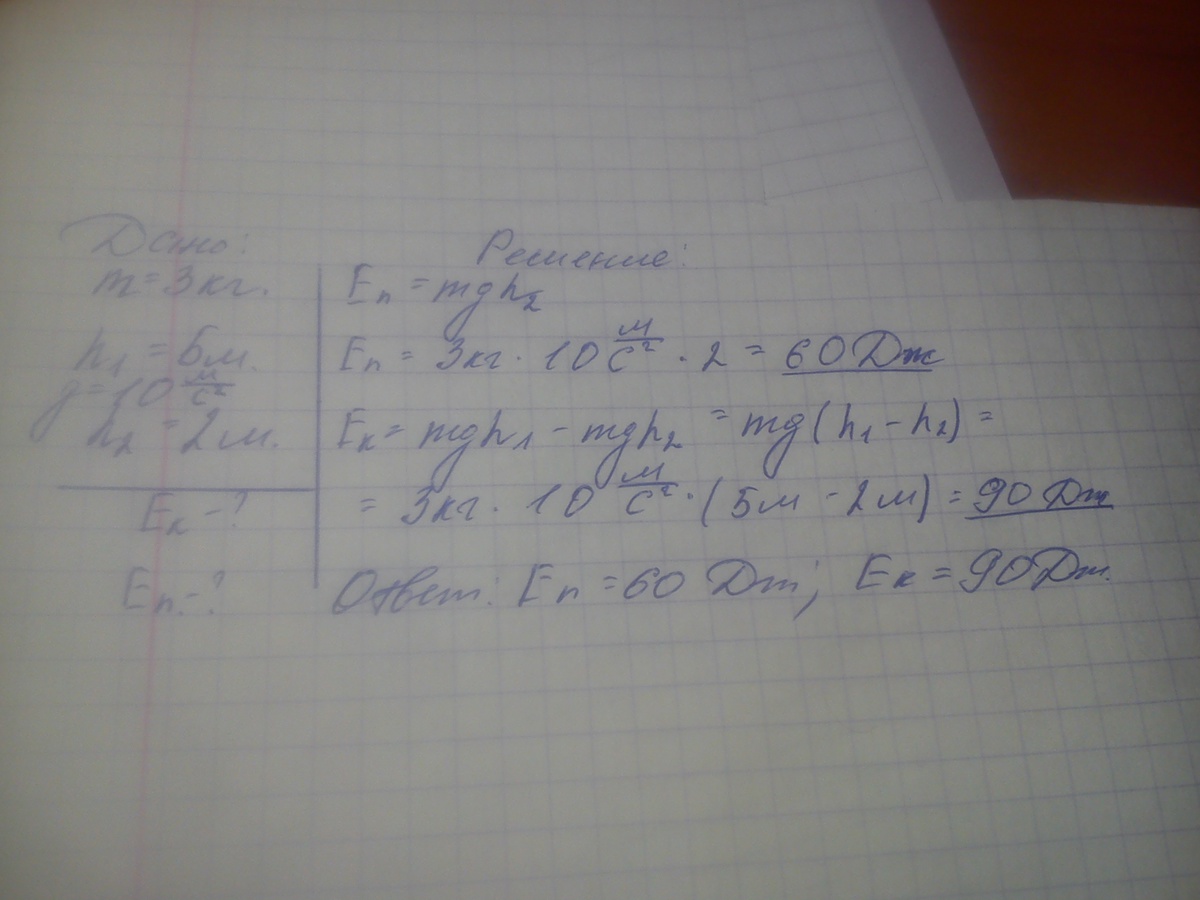 Дано:
m = 3 кг.
h₁ = 5м.
g = 10 м/с²
h₂ = 2 м.
Eк - ?
Eп - ?
Решение:
Eп = mgh₂
Eп = 3кг · 10 м/с² · 2 = 60 Дж
Eк = mgh₁ - mgh₂ = mg(h₁ - h₂) =
= 3кг · 10 м/с² · (5м - 2м) = 90 Дж
Ответ: Eп = 60 Дж; Eк = 90 Дж.